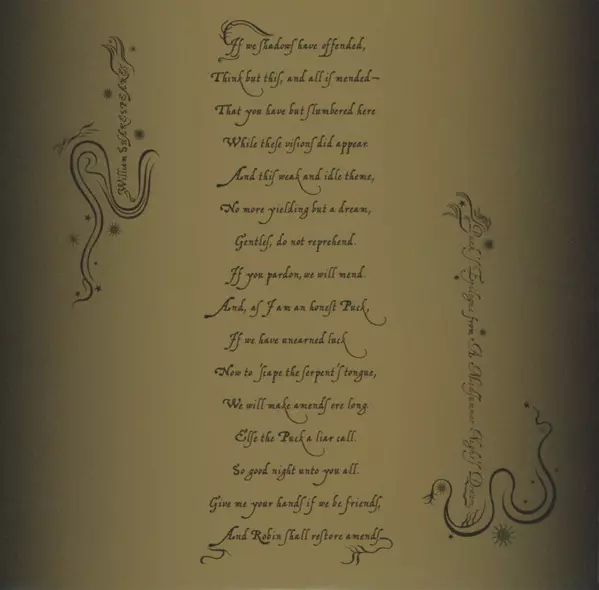 If we shadows have offended,
Think but this, and all is mended—
That you have but slumbered here
While these visions did appear.
And this weak and idle theme,
No more yielding but a dream,
Gentles, do not reprehend.
If you pardon, we will mend.
And, as I am an honest Puck,
If we have unearned luck
Now to 'scape the serpent's tongue,
We will make amends ere long.
Else the Puck a liar call.
So good night unto you all.
Give me your hands if we be friends,
And Robin shall restore amends—
William SHAKESPEARE
Puck's Epilogue from A Midsummer Night's Dream